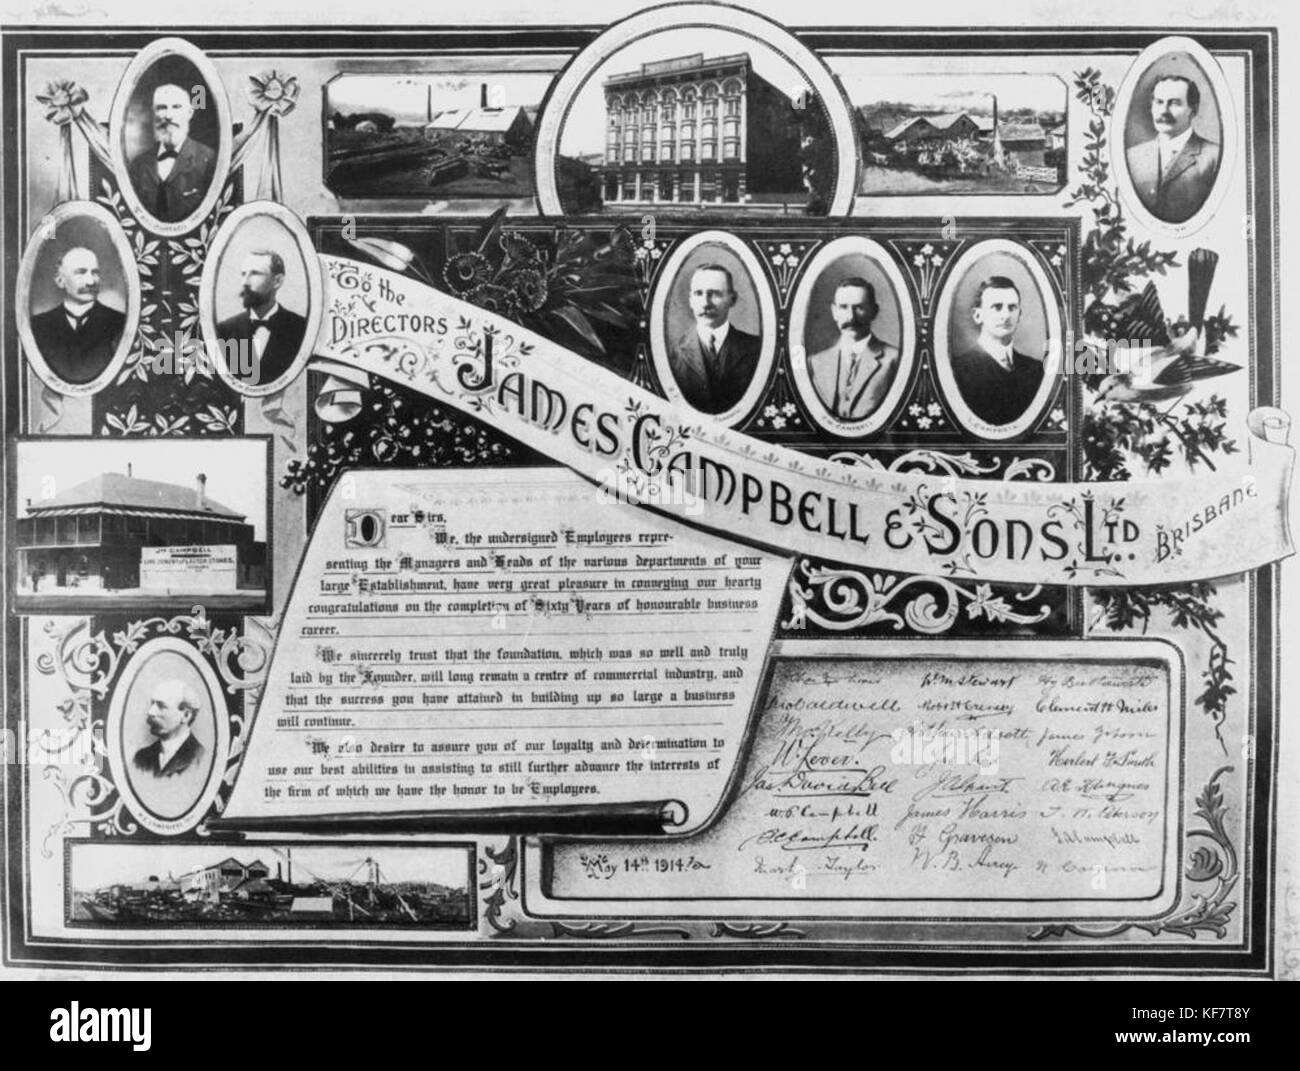 To the
DIRECTORS
JAMES CAMPBELL & SONS LTD.
BRISBANE
CAMPBELL
CAMPBELL
CAMPBELL
JAS CAMPBELL
LIME CEMENT & PLASTER STORES.
Dear Sirs,
We, the undersigned Employees repre-
senting the Managers and Heads of the various departments of your
large Establishment, have very great pleasure in conveying our hearty
congratulations on the completion of Sixty Years of honourable business
career.
We sincerely trust that the foundation, which was so well and truly
laid by the Founder, will long remain a centre of commercial industry, and
that the success you have attained in building up so large a business
will continue.
We also desire to assure you of our loyalty and determination to
use our best abilities in assisting to still further advance the interests of
the firm of which we have the honor to be Employees.
May 14th 1914.
Wm Stewart
Caldwell
Clement H Miles
W Lever.
Herbert G Smith
Jas. David Bell
W. S. Campbell
James Harris
Peterson
C Campbell.
Gravesen
Campbell
Taylor
W. B.
alamy
alamy
Image ID: KF7T8Y
www.alamy.com